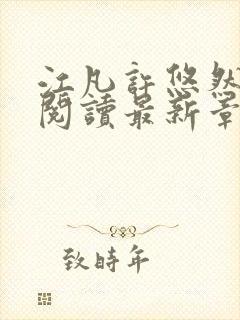 江凡許悠然
閱讀最新章
致時年